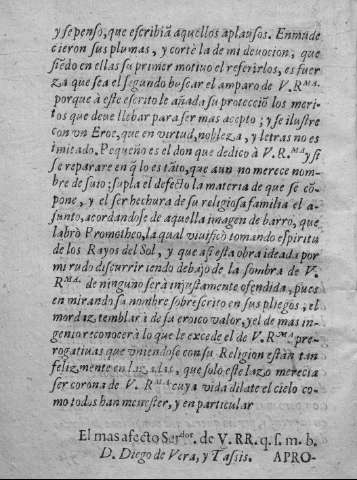 y se pensò, que escribiã aquellos aplausos. Enmude
cieron sus plumas, y cortè la de mi devocion; que
siẽdo en ellas su primer motiuo el referirlos, es fuer
za que sea el segundo buscar el amparo de V. Rᴹᴬ·
porque à este escrito le añada su protecciõ los meri-
tos que deve llebar para ser mas acepto; y se ilustre
con vn Eroe, que en virtud, nobleza, y letras no es
imitado. Pequeño es el don que dedico à V. R.ᴹᴬ y si
se reparare en q̃ lo es tãto, que aun no merece nom-
bre de suio: supla el defecto la materia de que se cõ-
pone, y el ser hechura de su religiosa familia el a-
sunto, acordandose de aquella imagen de barro, que
labrò Prometheo, la qual viuificò tomando espiritu
de los Rayos del Sol, y que asi esta obra ideada por
mi rudo discurrir iendo debajo de la sombra de V.
Rᴹᴬ· de ninguno serà injustamente ofendida, pues
en mirando su nombre sobrescrito en sus pliegos, el
mordaz temblarà de su eroico valor, y el de mas in-
genio reconocerà lo que le excede el de V. Rᴹᴬ· pre-
rogatiuas que vniendose con su Religion estàn tan
felizmente enlazadas, que solo este lazo merecia
ser corona de V. Rᴹᴬ cuya vida dilate el cielo co-
mo todos han menester, y en particular
El mas afecto Serᵈᵒʳ. de V. RR. q. s. m. b.
D. Diego de Vera, y Tassis. APRO-